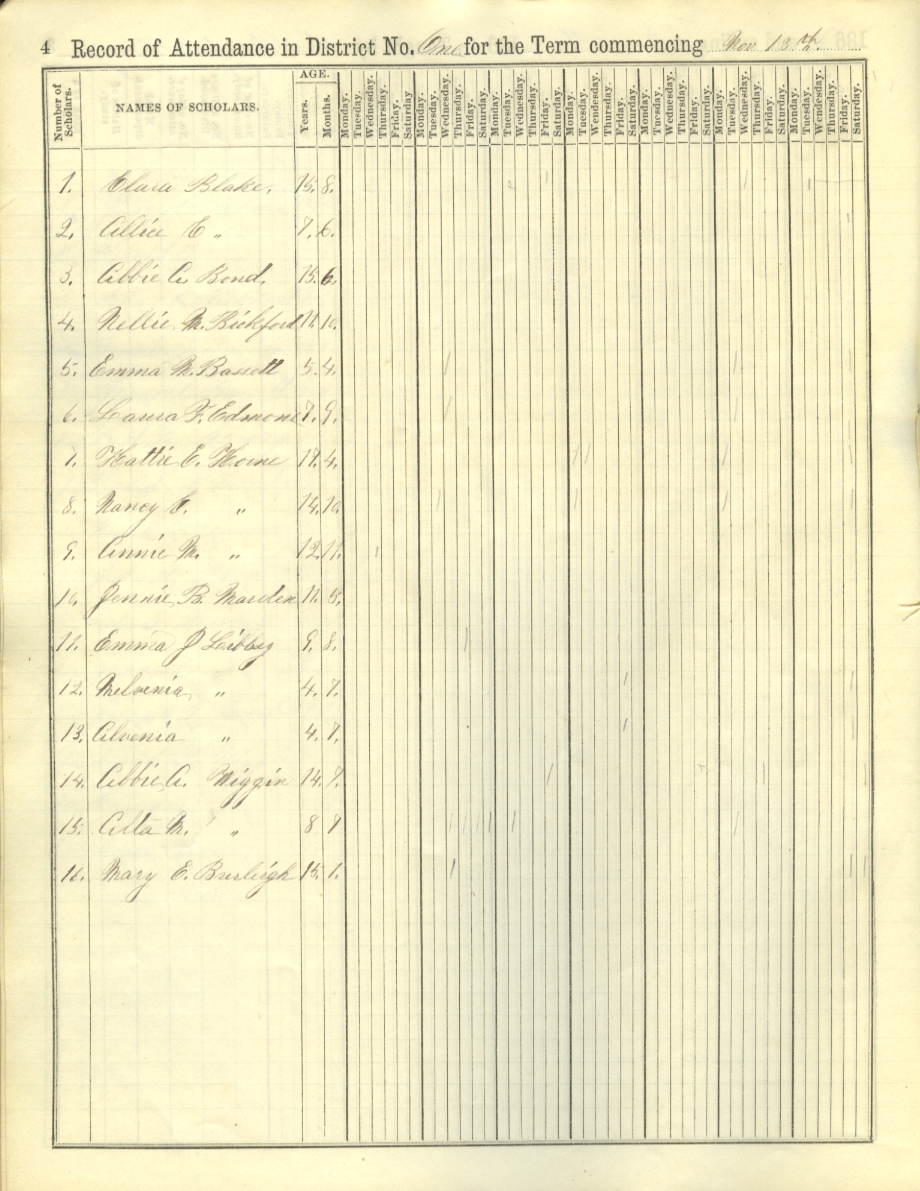 4 Record of Attendance in District No. One for the Term commencing Nov 18th.
Number of Scholars. NAMES OF SCHOLARS. AGE. Years. Months. Monday. Tuesday. Wednesday. Thursday. Friday. Saturday Monday. Tuesday. Wednesday. Thursday. Friday. Saturday. Monday. Tuesday. Wednesday. Thursday. Friday. Saturday. Monday. Tuesday. Wednesday. Thursday. Friday. Saturday. Monday. Tuesday. Wednesday. Thursday. Friday. Saturday. Monday. Tuesday. Wednesday. Thursday. Friday. Saturday. Monday. Tuesday. Wednesday. Thursday. Friday. Saturday.
1. Clara Blake. 15. 8.
2. Allice E " 7. 6.
3. Abbie A. Bond. 15. 6.
4. Nellie M. Bickford 11. 10.
5. Emma M. Bassett 5. 4.
6. Laura F. Edmond 7. 9.
7. Hattie E. Horne 17. 4.
8. Nancy E. " 14. 10.
9. Annie M. " 12. 11.
10. Jennie B. Marden 11. 5.
11. Emma J Libbey 9. 8.
12. Melvenia " 4. 7.
13. Alvenia " 4. 7.
14. Abbie A. Wiggin 14. 7.
15. Alta M. " 8 7
16. Mary E. Burleigh 15. 1.